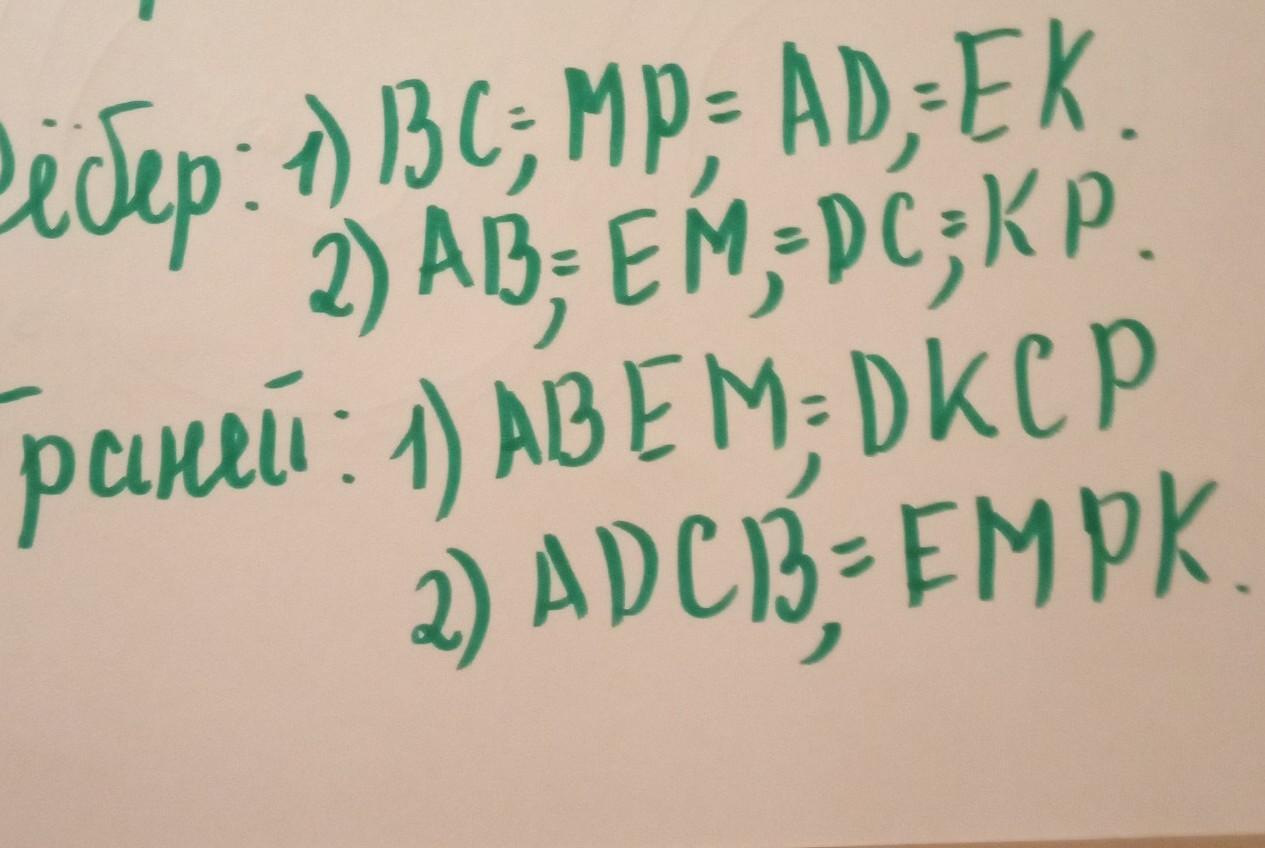 рёбер: 1) BC,= MP,= AD,= EK.
2) AB,= EM,= DC,= KP.
Граней: 1) ABEM,= DKCP
2) ADCB,= EMPK.